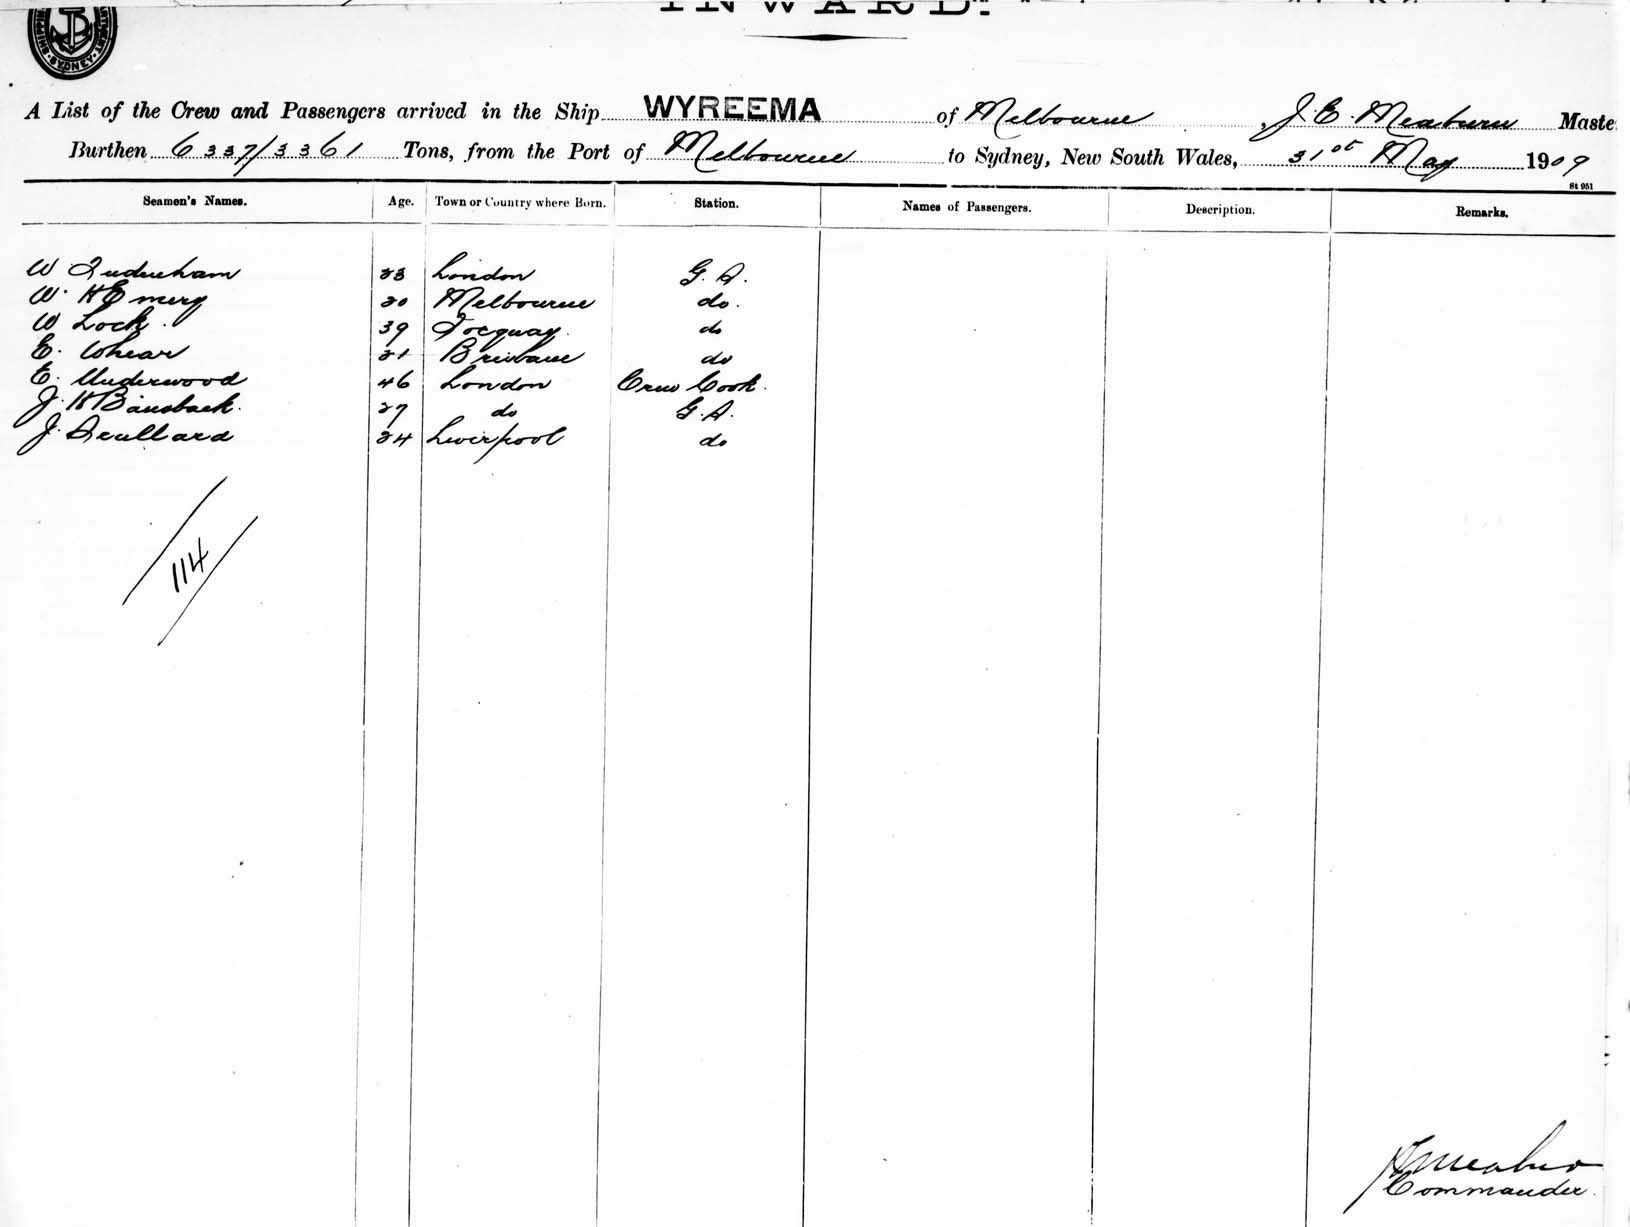 INWARD.
SYDNEY
A List of the Crew and Passengers arrived in the Ship WYREEMA of Melbourne, J. E. Meaburn Maste
Burthen 6337/3361 Tons, from the Port of Melbourne to Sydney, New South Wales, 31st May 1909
St 951
Seamen's Names. Age. Town or Country where Born. Station. Names of Passengers. Description. Remarks.
W 23 London G. S.
W. H Emery 20 Melbourne do.
W Lock. 39 Torquay. do
E. Whear 21 Brisbane do
E. Underwood 46 London Crew Cook.
J. H 27 do G. S.
J. 24 Liverpool do
114
Commander.